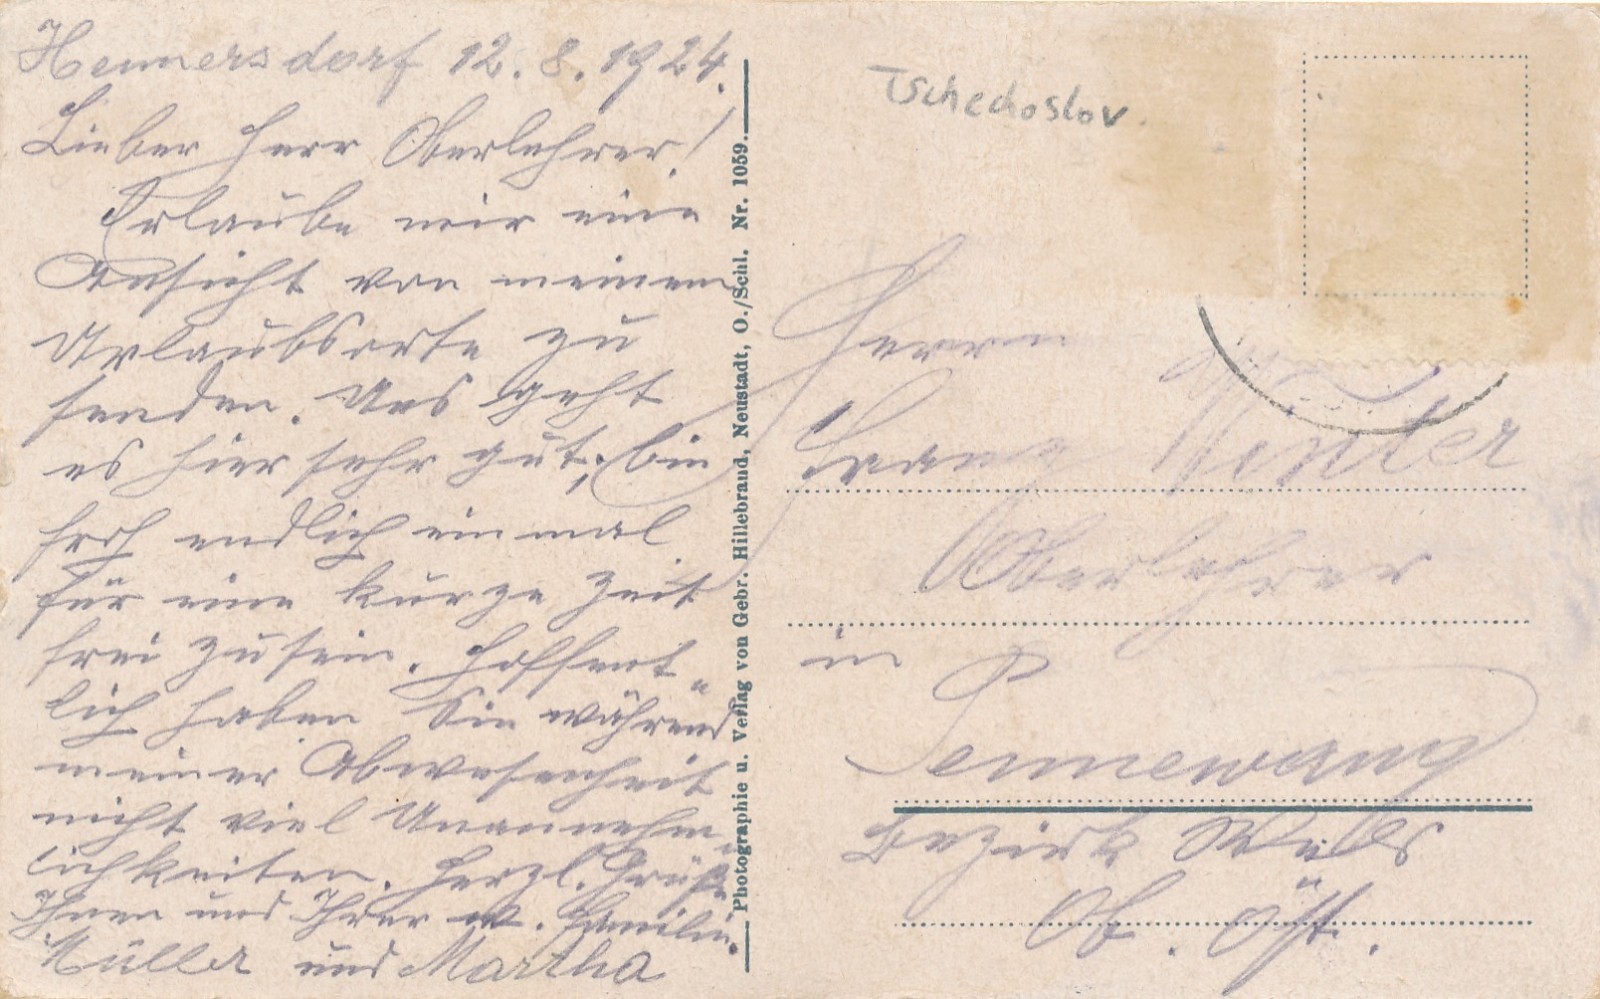 Hennersdorf 12.8.1924.
Lieber Herr Oberlehrer!
Erlaube mir eine
Ansicht von meinem
Urlaubsorte zu
senden. Uns geht
es hier sehr gut, bin
froh endlich einmal
für eine kurze Zeit
frei zu sein. Hoffent„
lich haben Sie während
meiner Abwesenheit
nicht viel Unannehm„
lichkeiten. Herzl. Grüße
Ihnen und Ihrer w. Familie.
Müller und Martha
Photographie u. Verlag von Gebr. Hillebrand, Neustadt, O./Schl. Nr. 1059.
Tschechoslov.
Herrn
Franz Winter
Oberlehrer
in
Pennewang
Bezirk Wels
Ob. Öst.